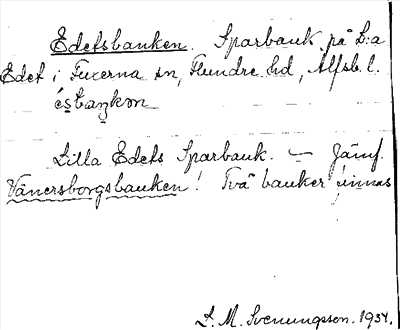 Edetsbanken. Sparbank på L:a
Edet i Fuxerna sn, Flundre hd, Älfsb. l.
Lilla Edets Sparbank. — Jämf.
Vänersborgsbanken! Två banker finnas
L. M. Svenungsson. 1934.